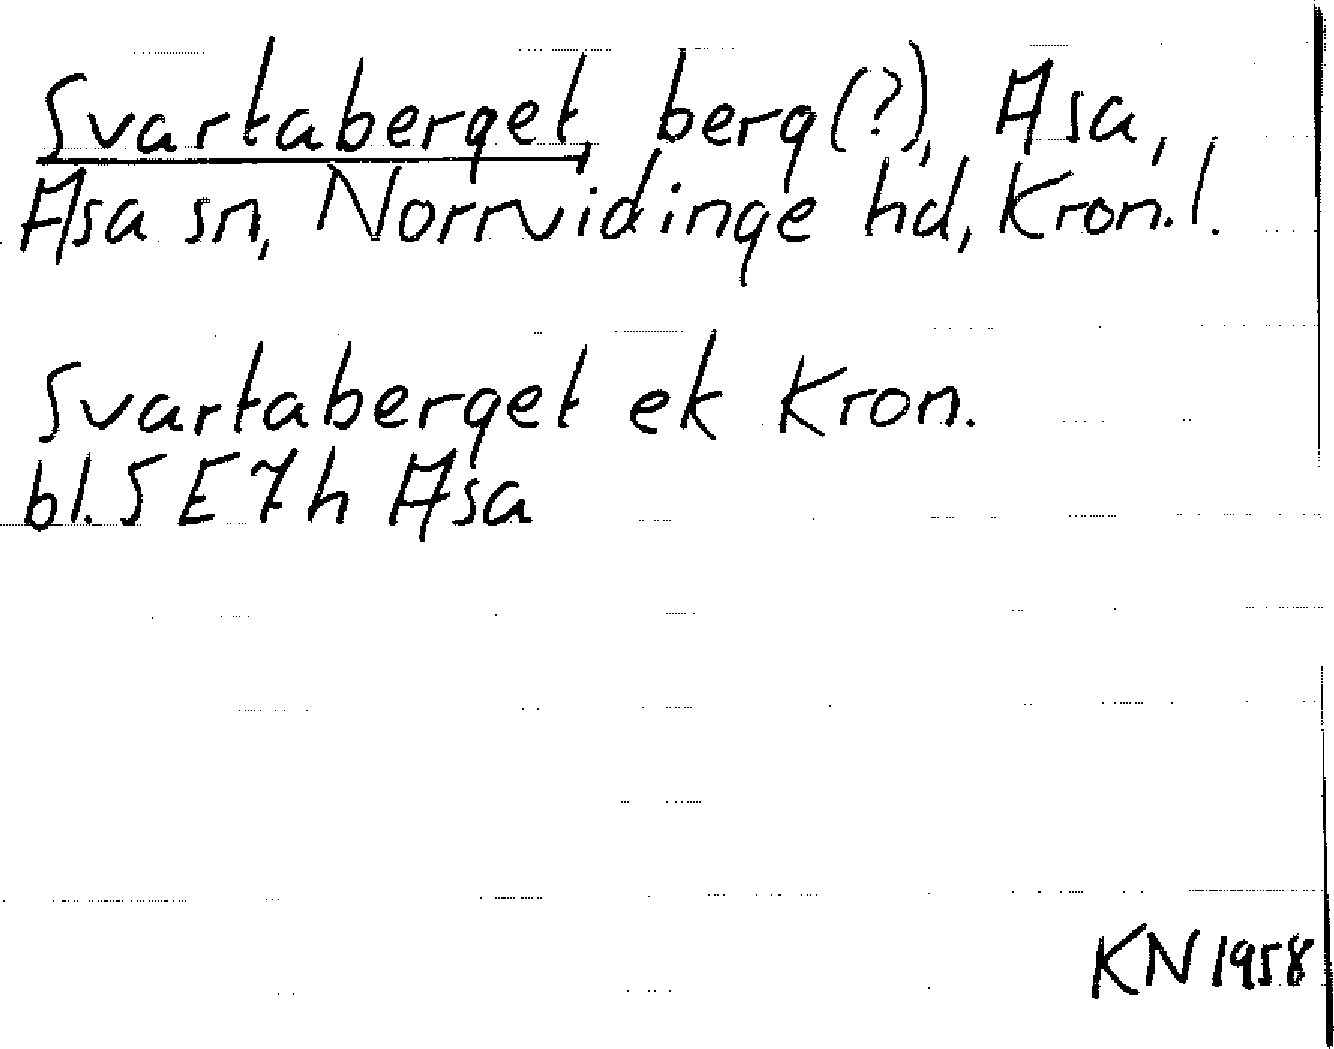 Svartaberget, berg(?), Asa,
Asa sn, Norrvidinge hd, Kron. l.
Svartaberget ek Kron.
bl. 5 E 7 h Asa
KN 1958